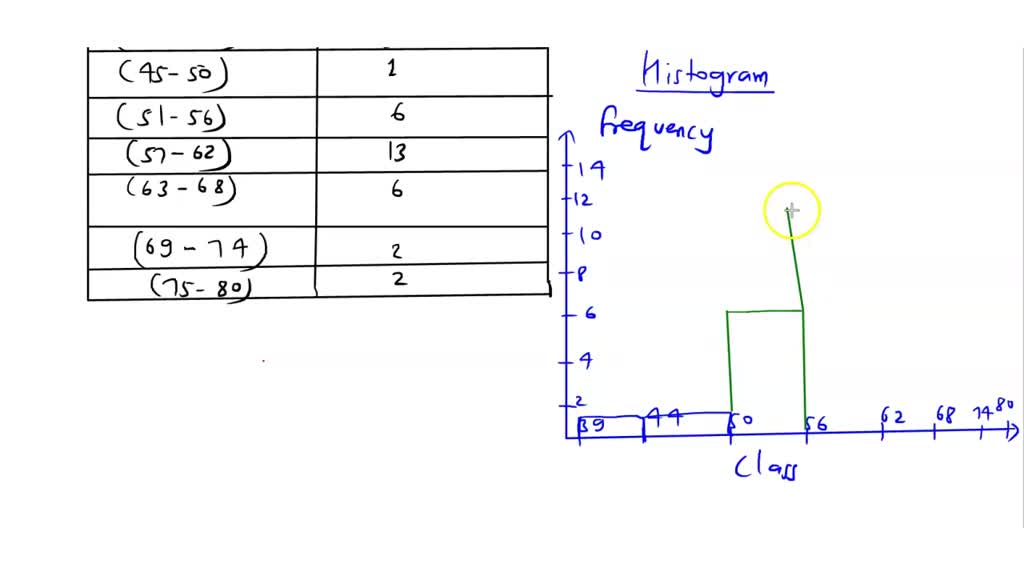 (45-50) 1
(51-56) 6
(57-62) 13
(63-68) 6
(69-74) 2
(75-80) 2
Histogram
frequency
14
12
10
8
6
4
2
39 44 50 56 62 68 74 80
Class